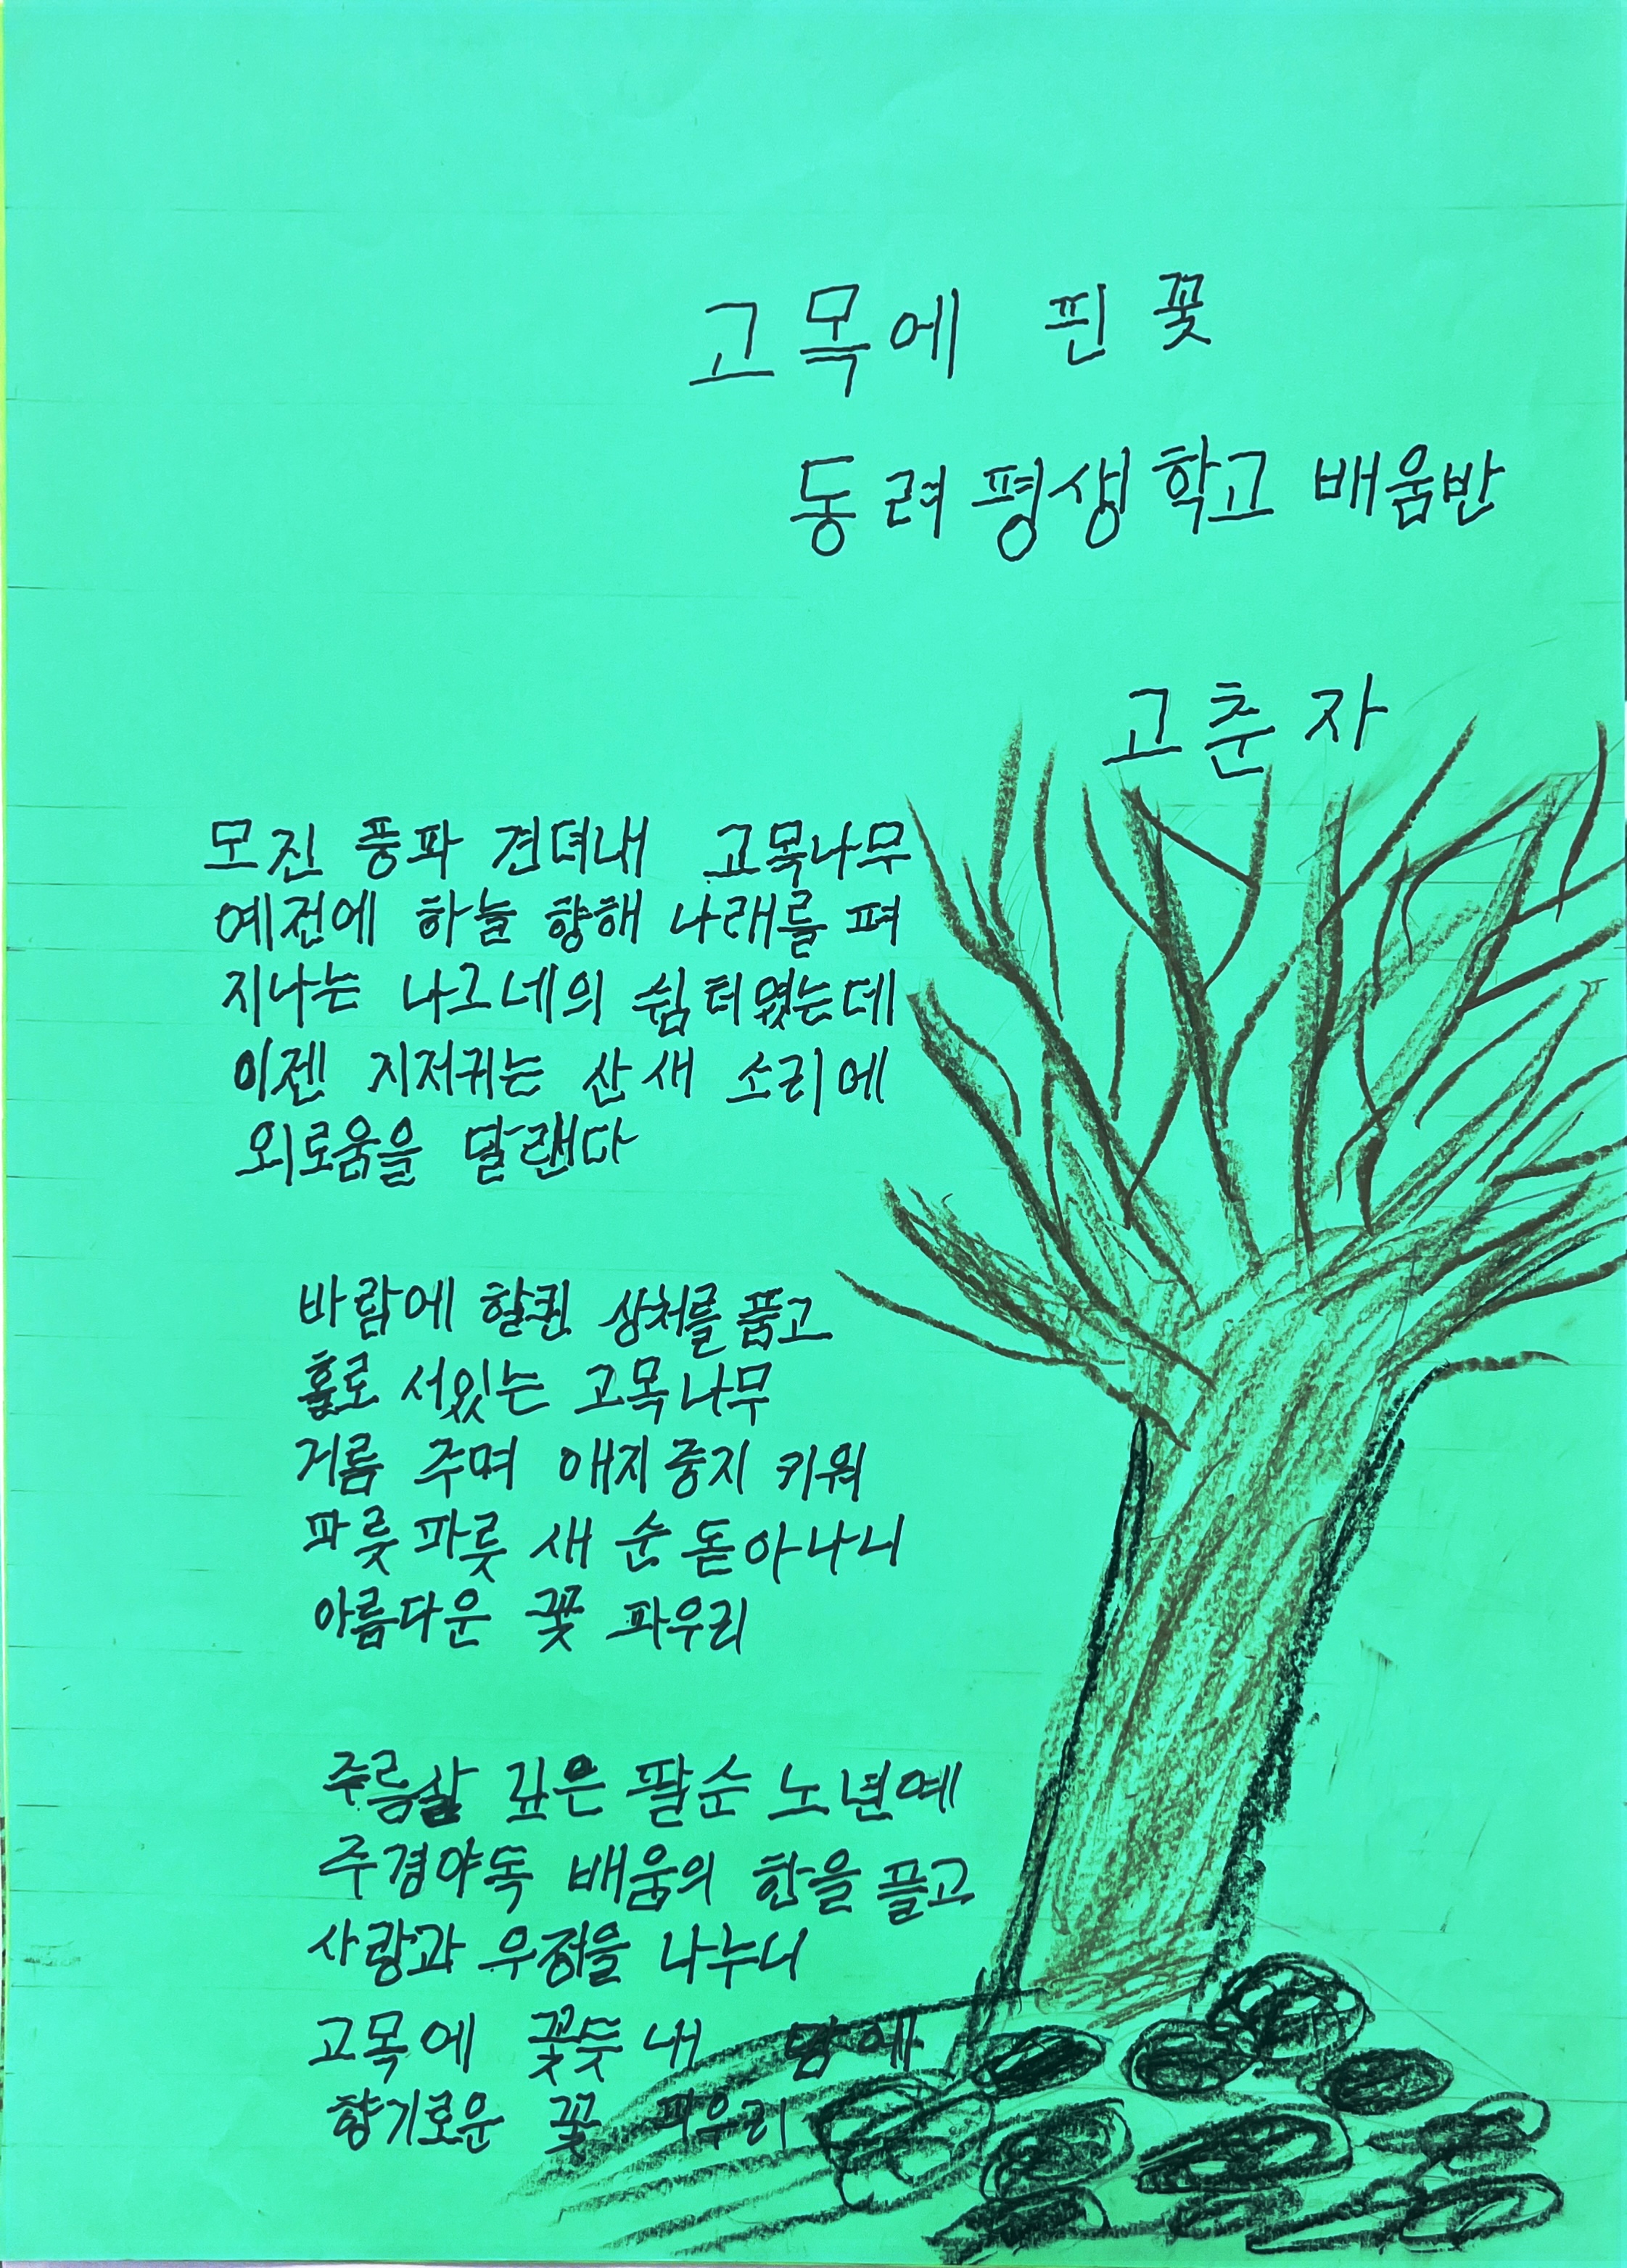 고목에 핀 꽃
동려평생학교 배움반
고춘자
모진 풍파 견뎌내 고목나무
예전에 하늘 향해 나래를 펴
지나는 나그네의 쉼터였는데
이젠 지저귀는 산새 소리에
외로움을 달랜다
바람에 할퀸 상처를 품고
홀로 서있는 고목나무
거름 주며 애지중지 키워
파릇파릇 새 순 돋아나니
아름다운 꽃 피우리
주름살 깊은 팔순 노년에
주경야독 배움의 한을 풀고
사랑과 우정을 나누니
고목에 꽃듯 내 맘에
향기로운 꽃 피우리